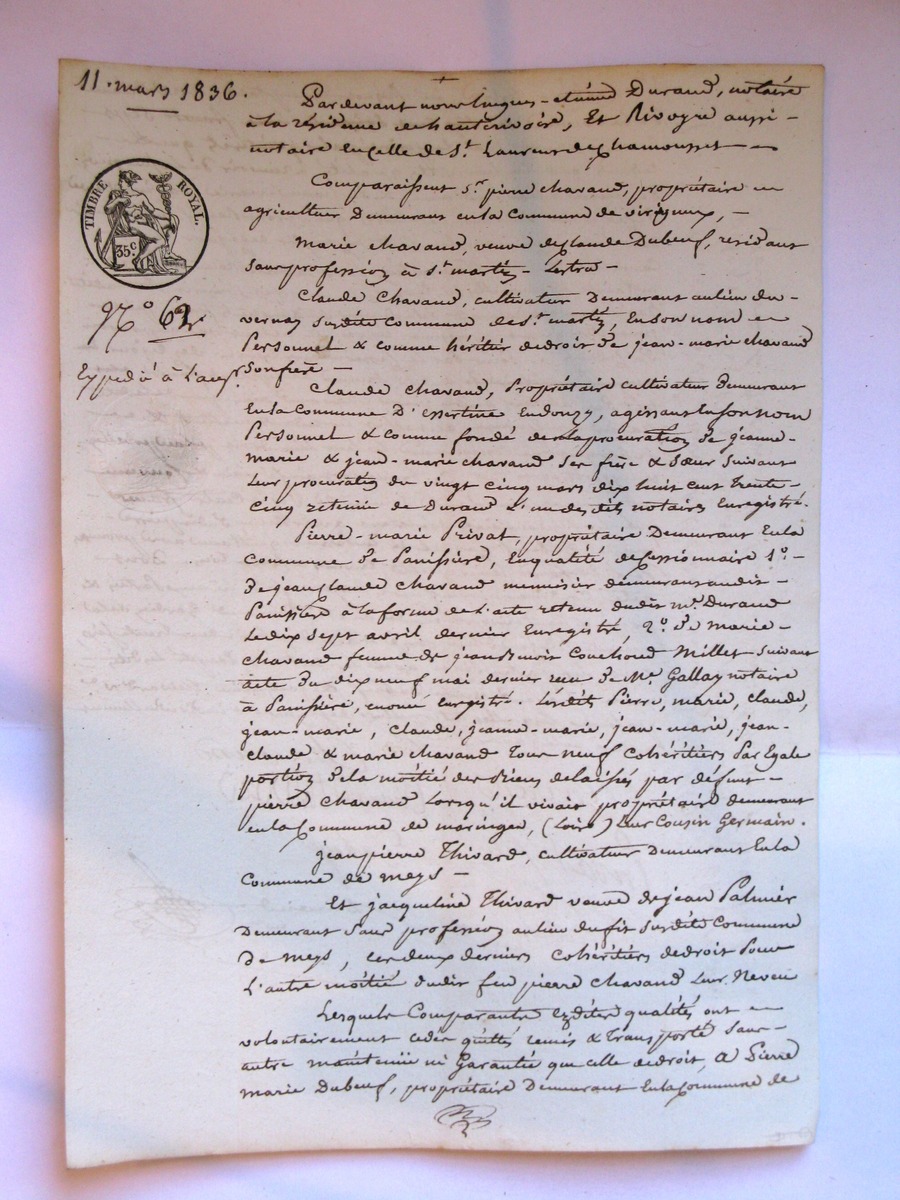 11. mars 1836.
TIMBRE ROYAL.
35 c.
N.o 62
Expédié à
Pardevant nous hugues - Durand, notaire
à la résidence de hauterivoire, Et Rivoyre aussi -
notaire En celle de St. Laurent de chamousset -
Comparaissent Sr. pierre chavand, propriétaire
agriculteur Demeurant en la Commune de virigneux, -
Marie chavand, veuve de claude Dubeuf, résidant
sans profession à St. martin - Lestra -
Claude Chavand, cultivateur Demeurant au lieu du -
vernay susdite commune de St. martin, En son nom
Personnel & comme héritier de droit de jean-marie chavand
son frère -
Claude Chavand, Propriétaire cultivateur demeurant
En la Commune D'Essertine En donzy, agissant En son nom
Personnel & comme fondé de la procuration de jeanne-
marie & jean-marie chavand ses frère & Sœur suivant
Leur procuration du vingt cinq mars dix huit cent trente-
cinq retenue de Durand L'un des dits notaires Enregistré.
Pierre-marie Privat, propriétaire Demeurant En la
commune de Panissière, En qualité de Cessionnaire 1o. -
de jean claude chavand menuisier demeurant audit -
Panissière à la forme de L'acte retenu dudit me. Durand
Le dix sept avril dernier Enregistré, 2o. de marie -
chavand femme de jean benoit Couchoud Millet suivant
acte du dix neuf mai dernier recu de Me. Gallay notaire
à Panissière, enregistré. Lesdits Pierre, marie, claude,
jean-marie, claude, jeanne-marie, jean-marie, jean-
claude & marie chavand Tous neuf cohéritiers Par Egale
portion de la moitié des Biens délaissés par défunt -
pierre chavand Lorsqu'il vivait propriétaire demeurant
en la Commune de maringes, (Loire) Leur Cousin Germain.
jean pierre Thivard, cultivateur Demeurant En la
Commune de Meys -
Et jacqueline Thivard veuve de jean Palmier
Demeurant Sans profession au lieu du fit susdite Commune
De meys, ces deux derniers cohéritiers de droit Pour
L'autre moitié dudit feu pierre chavand Leur Neveu
Lesquels Comparants Esdites qualités ont
volontairement cédé quitté remis & transporté Sans -
autre maintenue ni Garantie que celle de droit, à Pierre
marie Dubeuf, propriétaire Demeurant En la Commune de